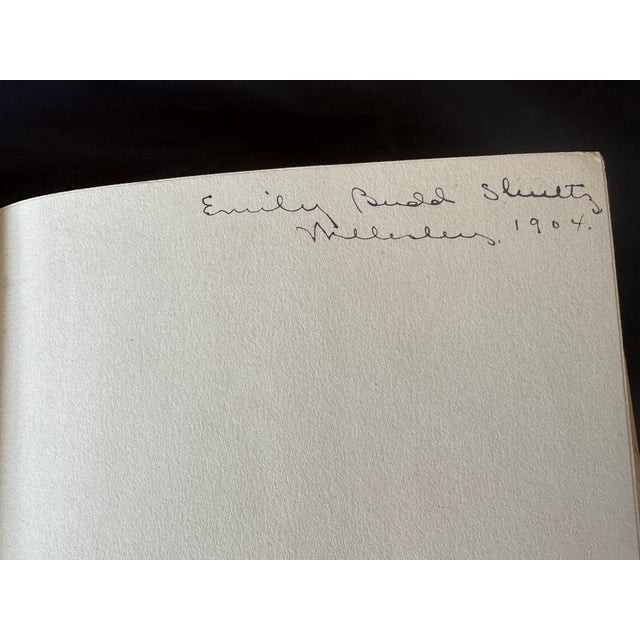 Emily Budd Shultz
Wellesley, 1904.